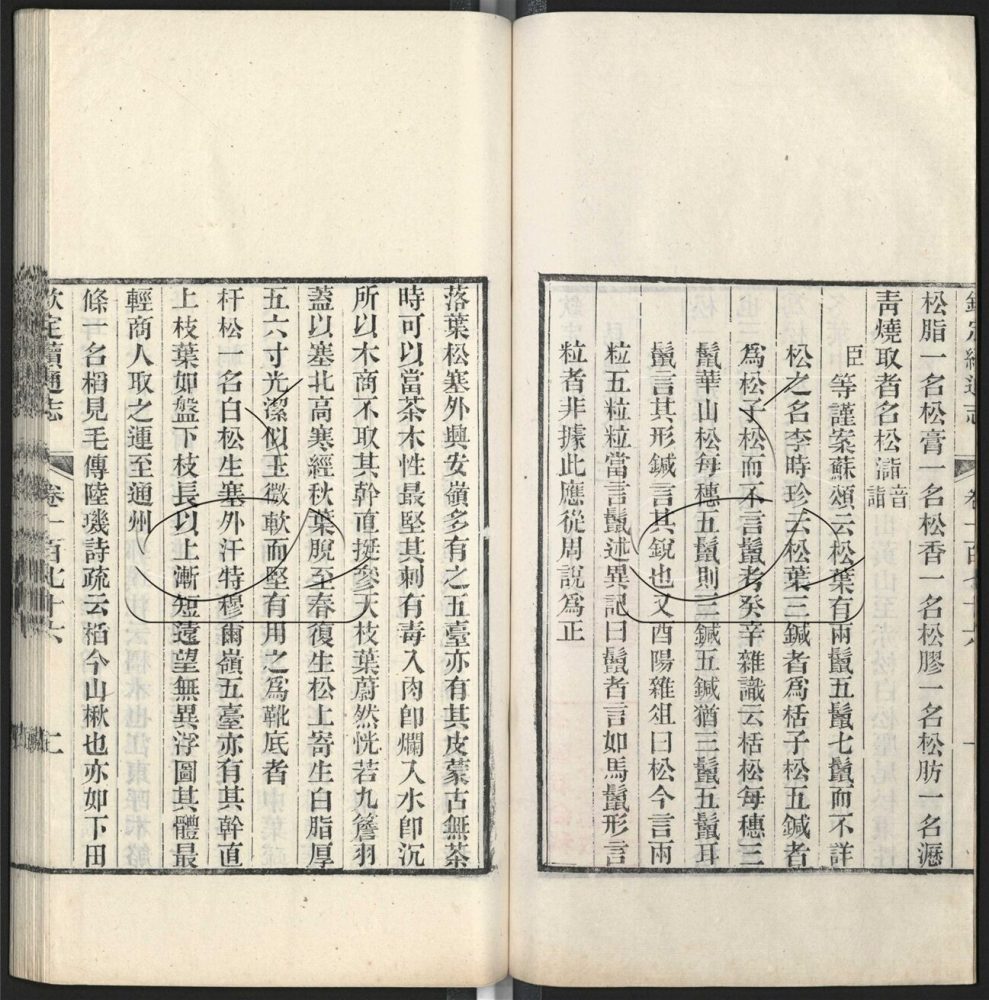 欽定續通志 卷一百七十六 一
松脂一名松膏一名松香一名松膠一名松肪一名瀝
青燒取者名松㵖音
諸
臣等謹案蘇頌云松葉有兩鬛五鬛七鬛而不詳
松之名李時珍云松葉三鍼者爲栝子松五鍼者
爲松子松而不言鬛考癸辛雜識云栝松每穗三
鬛華山松每穗五鬛則三鍼五鍼猶三鬛五鬛耳
鬛言其形鍼言其銳也又酉陽雜俎曰松今言兩
粒五粒粒當言鬛述異記曰鬛者言如馬鬛形言
粒者非據此應從周說爲正
落葉松塞外興安嶺多有之五臺亦有其皮蒙古無茶
時可以當茶木性最堅其刺有毒入肉卽爛入水卽沉
所以木商不取其幹直挺參天枝葉蔚然恍若九簷羽
蓋以塞北高寒經秋葉脫至春復生松上寄生白脂厚
五六寸光潔似玉微軟而堅有用之爲靴底者
杆松一名白松生塞外汗特穆爾嶺五臺亦有其幹直
上枝葉如盤下枝長以上漸短遠望無異浮圖其體最
輕商人取之運至通州
條一名槄見毛傳陸璣詩疏云槄今山楸也亦如下田
欽定續通志 卷一百七十六 二